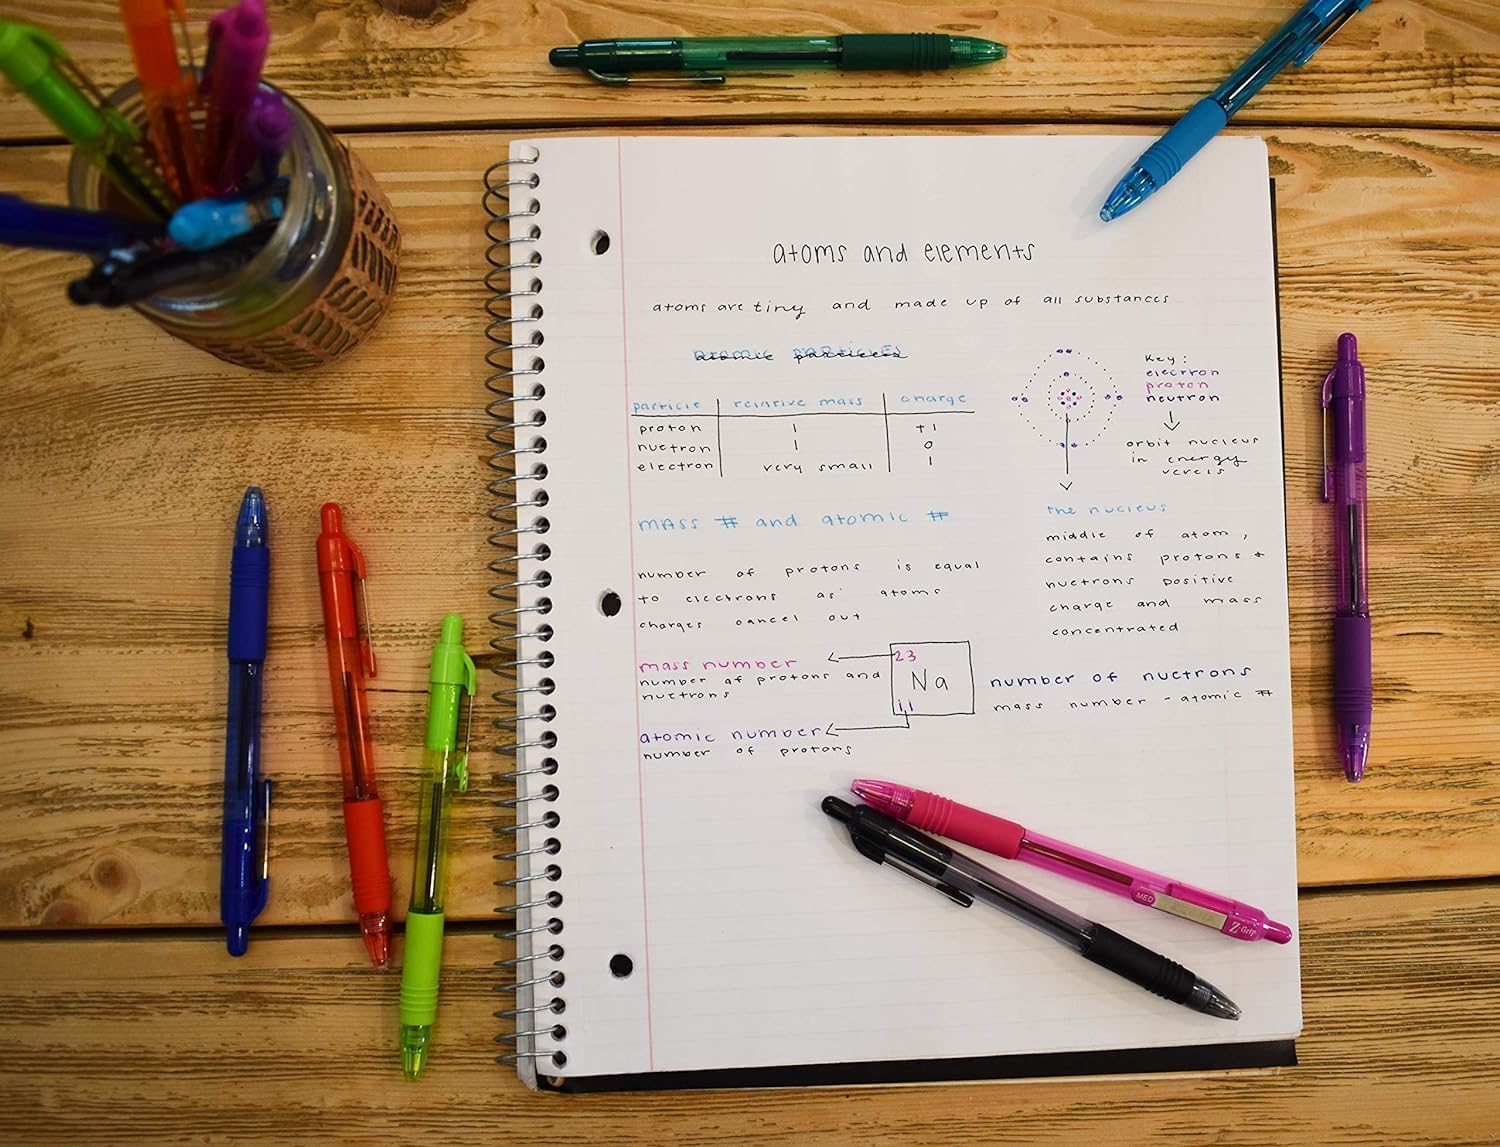 atoms and elements
atoms are tiny and made up of all substances
atomic particles
particle relative mass charge
proton 1 +1
nuetron 1 0
electron very small 1
Key:
electron
proton
neutron
orbit nucleus
in energy
levels
mass # and atomic #
number of protons is equal
to electrons as atoms
charges cancel out
the nucleus
middle of atom,
contains protons +
nuetrons positive
charge and mass
concentrated
mass number
number of protons and
nuetrons
23
Na
11
atomic number
number of protons
number of nuetrons
mass number - atomic #
MED
Z-Grip